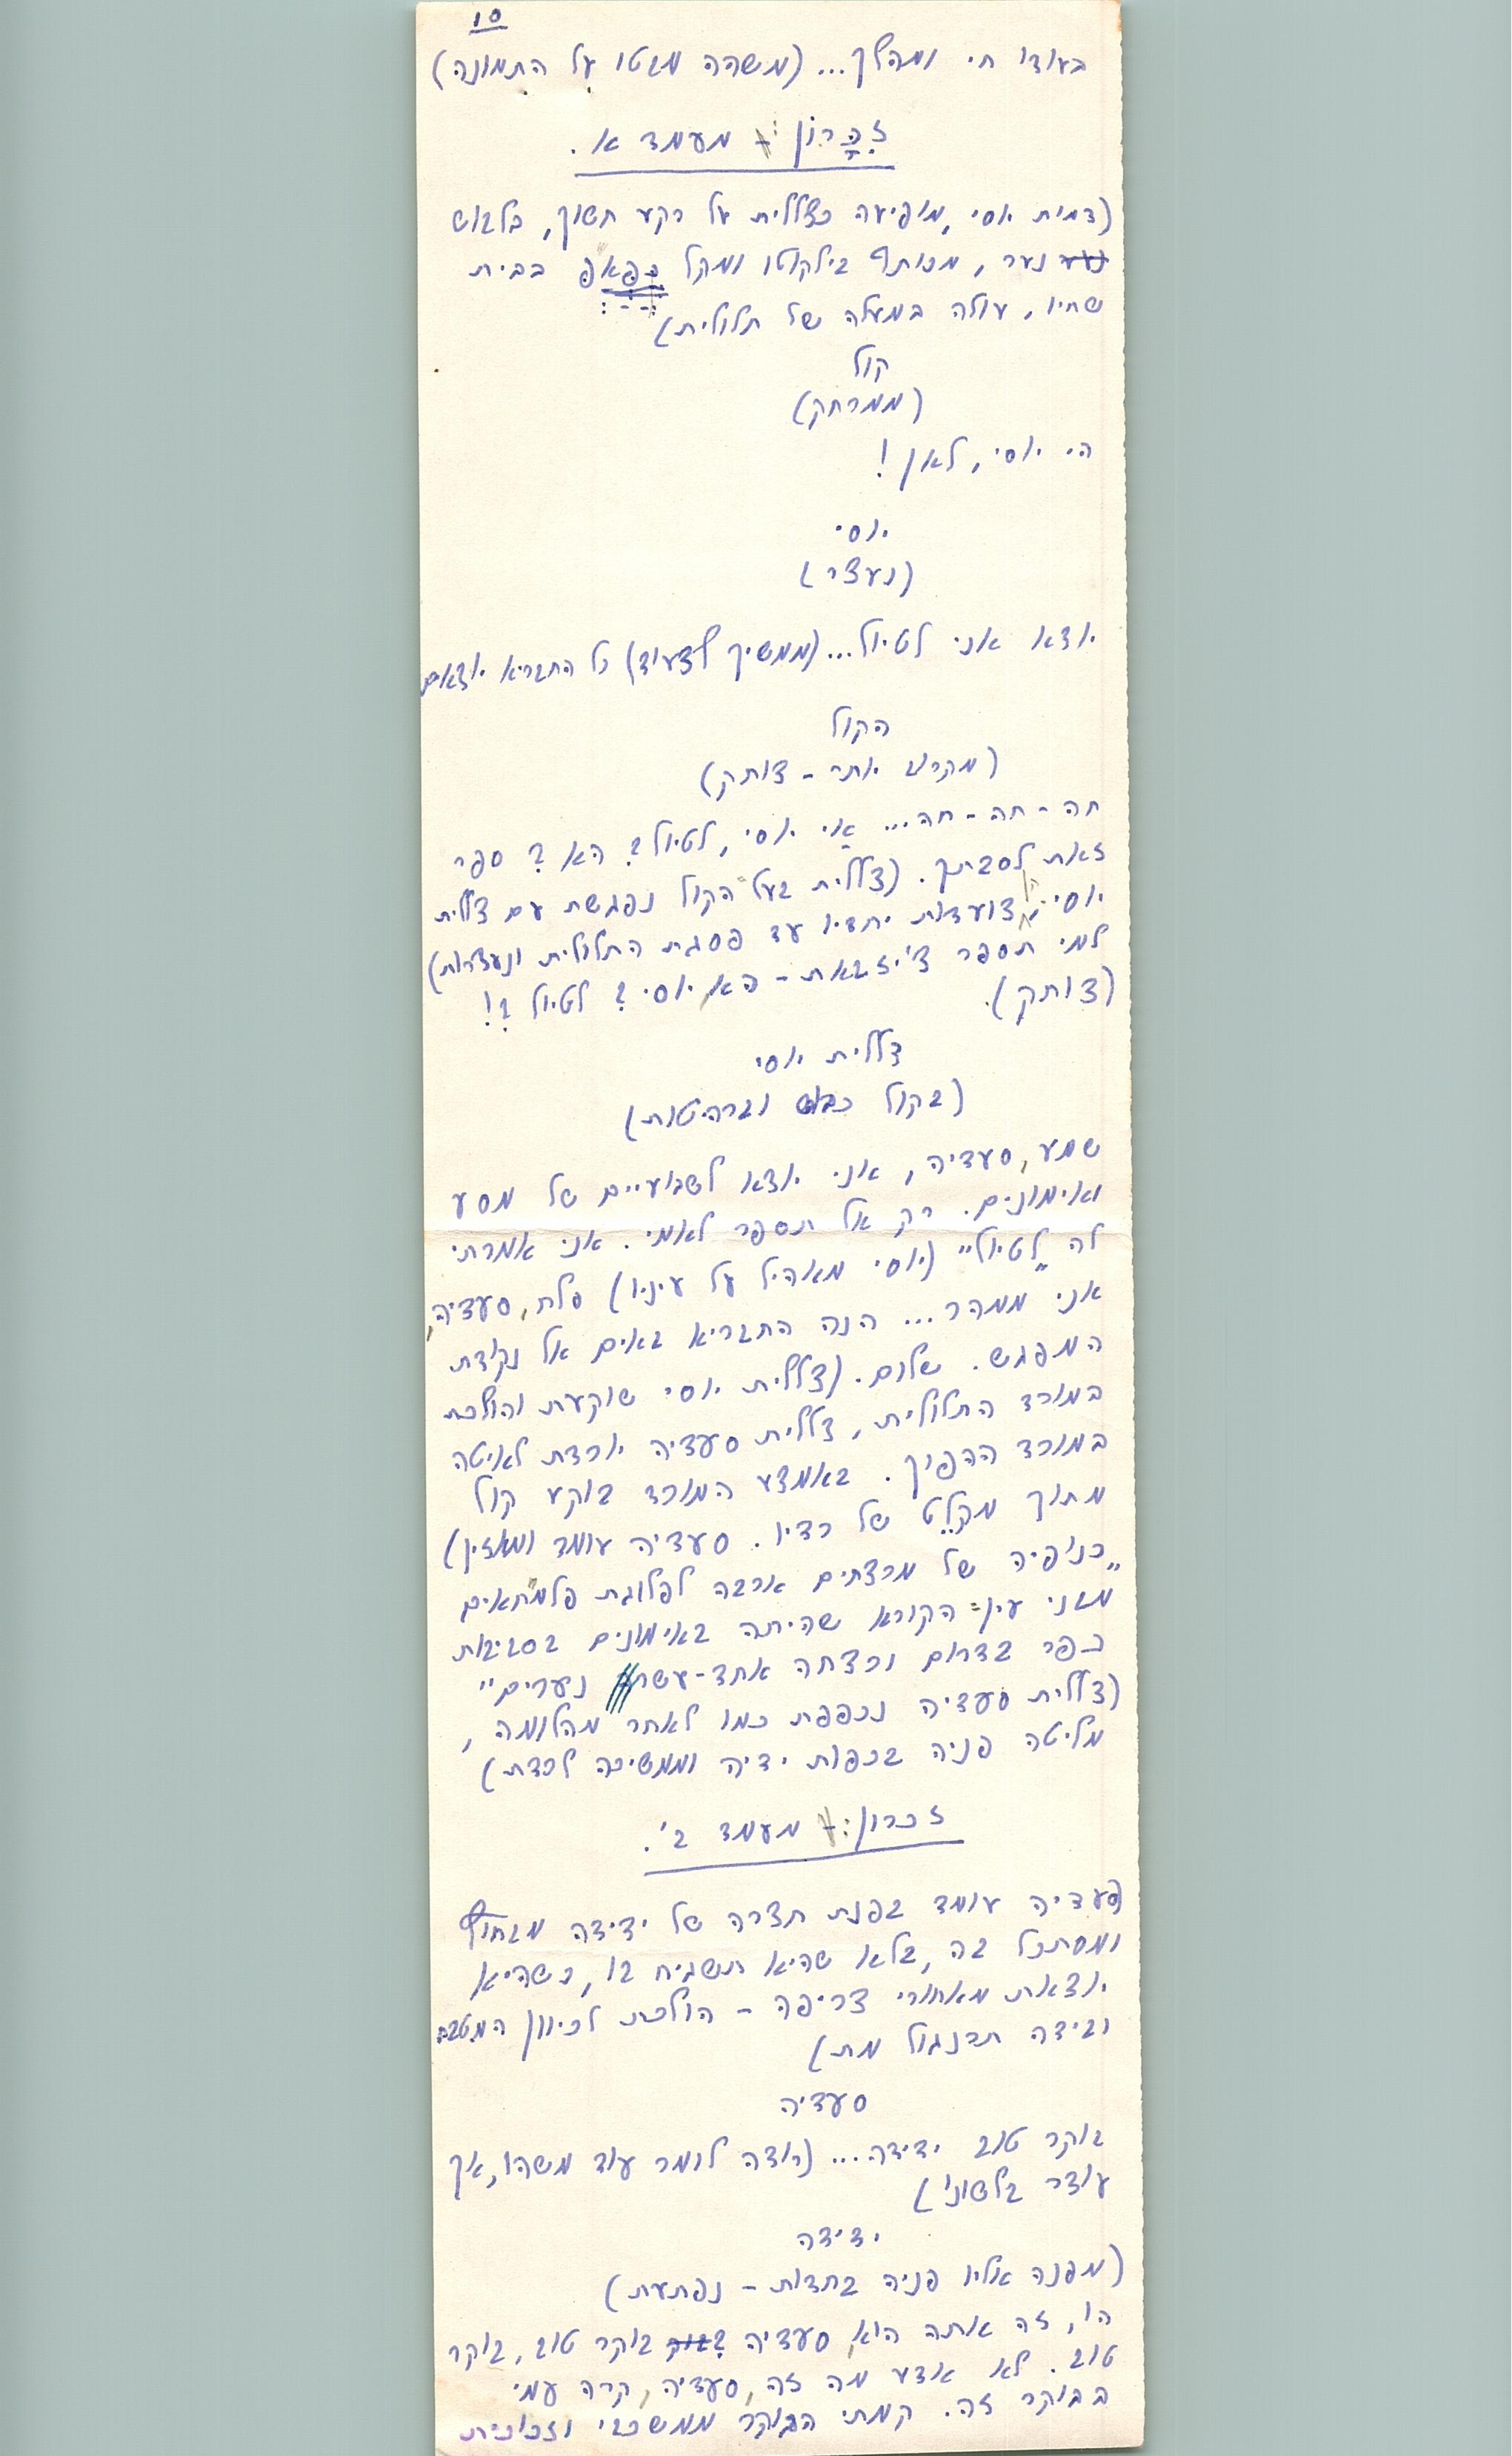 10
בעודו חי ומהלך... (משהה מבטו על התמונה)
זכרון: מעמד א.
(דמות יוסי, מופיעה כצללית על רקע חשוך, בלבוש
נער, מכותף בילקוטו ומקל בבית
שחיו, עולה במעלה של תלולית)
קול
(ממרחק)
הי יוסי, לאן!
יוסי
(נעצר)
יוצא אני לטיול... (ממשיך לצעוד) כל החבריא יוצאים
הקול
(מקרוב יותר - צוחק)
חה - חה - חה... אי יוסי, לטיול? הא? ספר
זאת לסבתך. (צללית בעל הקול נפגשת עם צללית
יוסי צועדות יחדיו עד פסגת התלולית ונעצרות)
למי תספר צ'יזבאת - הא, יוסי? לטיול?!
(צוחק).
צללית יוסי
(בקול כבוש וברהיטות)
שמע, סעדיה, אני יוצא לשבועיים של מסע
ואימונים. רק אל תספר לאמי. אני אמרתי
לה „לטיול" (יוסי מאהיל על עיניו) סלח, סעדיה,
אני ממהר... הנה החבריא באים אל נקודת
המפגש. שלום. (צללית יוסי שוקעת והולכת
במורד התלולית, צללית סעדיה יורדת לאיטה
במורד ההפוך. באמצע המורד בוקע קול
מתוך מקלט של רדיו. סעדיה עומד ומאזין)
„כנופיה של מרצחים ארבה לפלוגת פלמחאים
מבני עין-הקורא שהיתה באימונים בסביבות
כפר בדרום ורצחה אחד-עשר נערים"
(צללית סעדיה נכפפת כמו לאחר מהלומה,
מליטה פניה בכפות ידיה וממשיכה לרדת)
זכרון: מעמד ב'.
(סעדיה עומד בפנת חצרה של ידידה מבחוץ
ומסתכל בה, בלא שהיא תשגיח בו, כשהיא
יוצאת מאחורי צריפה - הולכת לכיוון המטבח
ובידה תרנגול מת)
סעדיה
בוקר טוב ידידה... (רוצה לומר עוד משהו, אך
עוצר בלשונו)
ידידה
(מפנה אליו פניה בחדות - נפתעת)
הו, זה אתה הוא, סעדיה? בוקר טוב, בוקר
טוב. לא אדע מה זה, סעדיה, קרה עמי
בבוקר זה. קמתי הבוקר ממשכבי וזכוכית